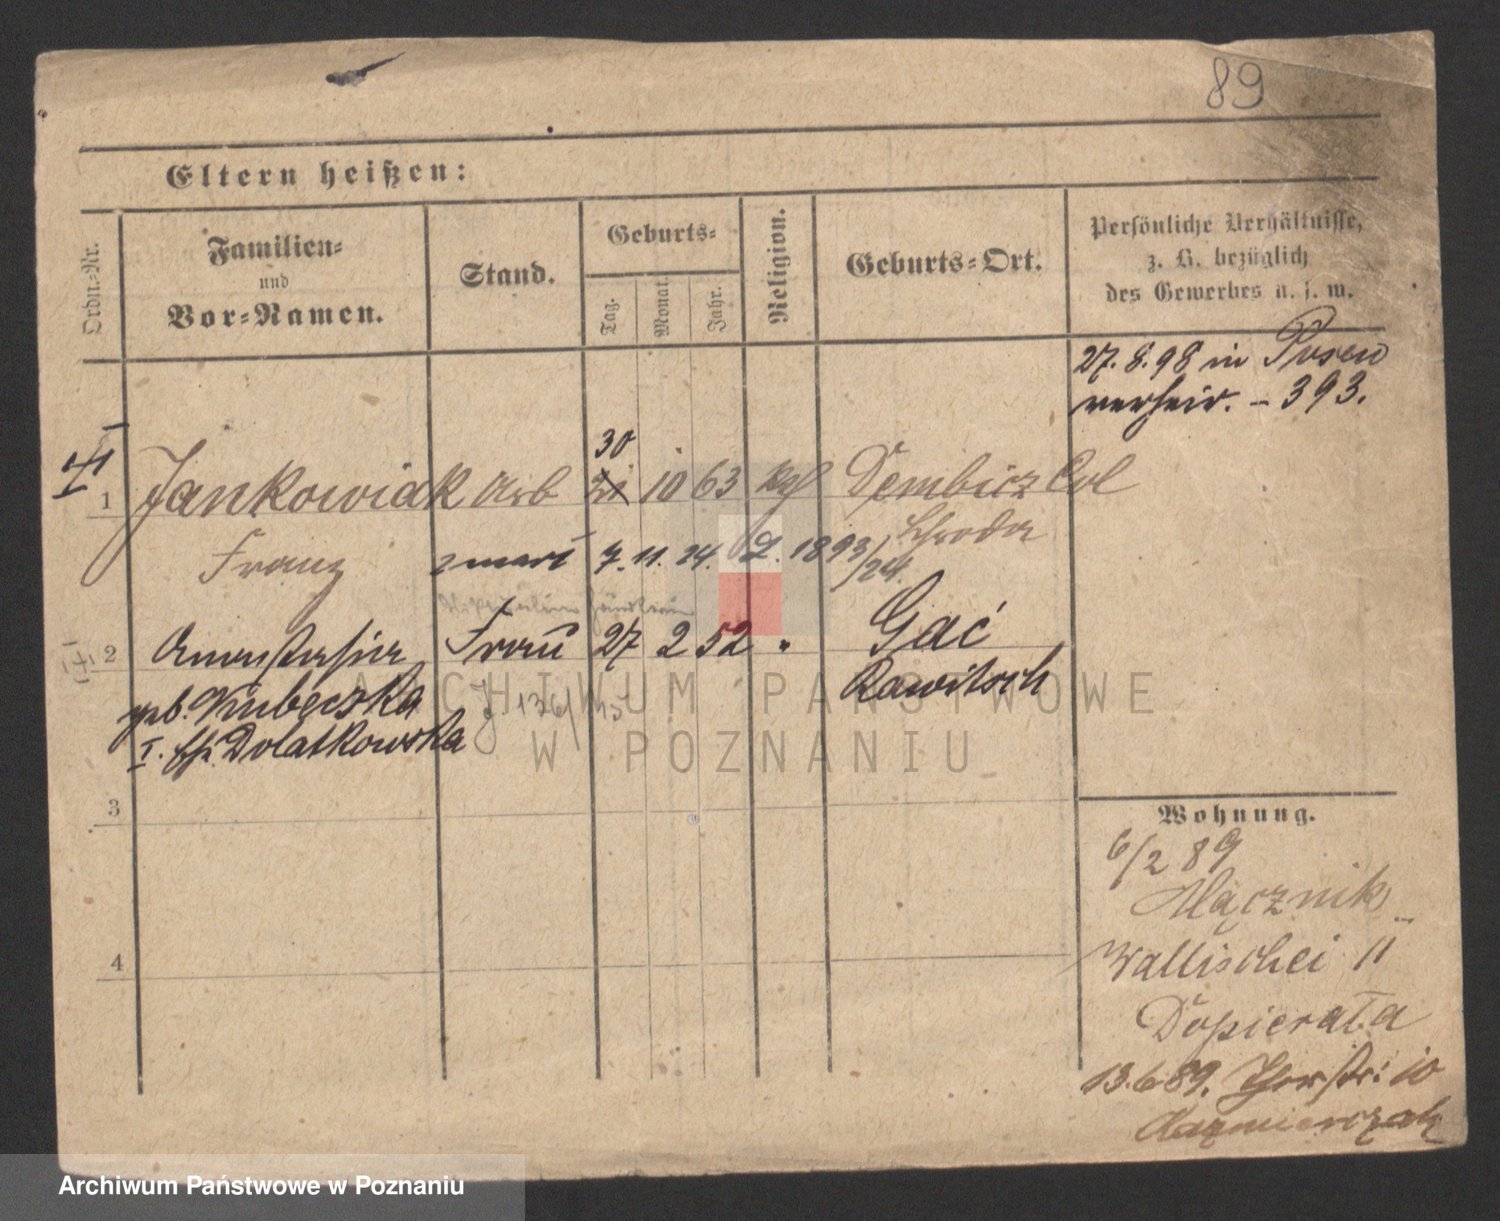 89
Eltern heißen:
Ordn.-Nr.
Familien-
und
Vor-Namen.
Stand.
Geburts-
Tag.
Monat.
Jahr.
Religion.
Geburts-Ort.
Persönliche Verhältnisse,
z. B. bezüglich
des Gewerbes u. s. w.
27.8.98 in Posen
verheir. - 393.
1 Jankowiak Arb 30 21 10 63 kgl Dembicz Col
Schroda
Franz zmarł 7. 11. 24. 1893/24.
2 Anastasia Frau 27 2 52 " Gać
geb. Kubeczka Rawitsch
J 136/15
I. Eh. Dolatkowska
3
4
Wohnung.
6/2 89
Mącznik
Wallischei 11
Dopierała
13.6.89. Thorstr: 10
Kazmierczak
ARCHIWUM PAŃSTWOWE
W POZNANIU
Archiwum Państwowe w Poznaniu